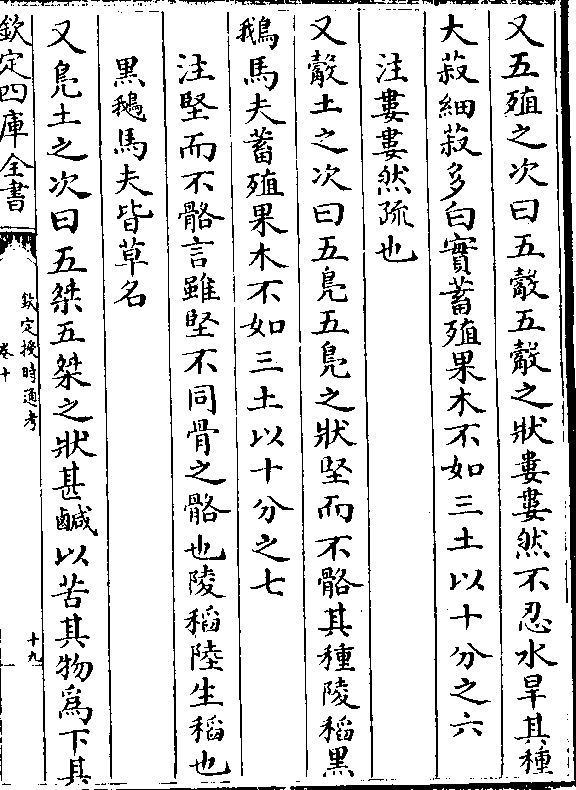 又五殖之次曰五觳五觳之狀婁婁然不忍水旱其種
大菽細菽多白實蓄殖果木不如三土以十分之六
注婁婁然疏也
又觳土之次曰五鳧五鳧之狀堅而不骼其種陵稻黑
鵝馬夫蓄殖果木不如三土以十分之七
注堅而不骼言雖堅不同骨之骼也陵稻陸生稻也
黑鵝馬夫皆草名
又鳧土之次曰五桀五桀之狀甚鹹以苦其物爲下其
欽定四庫全書
欽定授時通考
卷十
十九